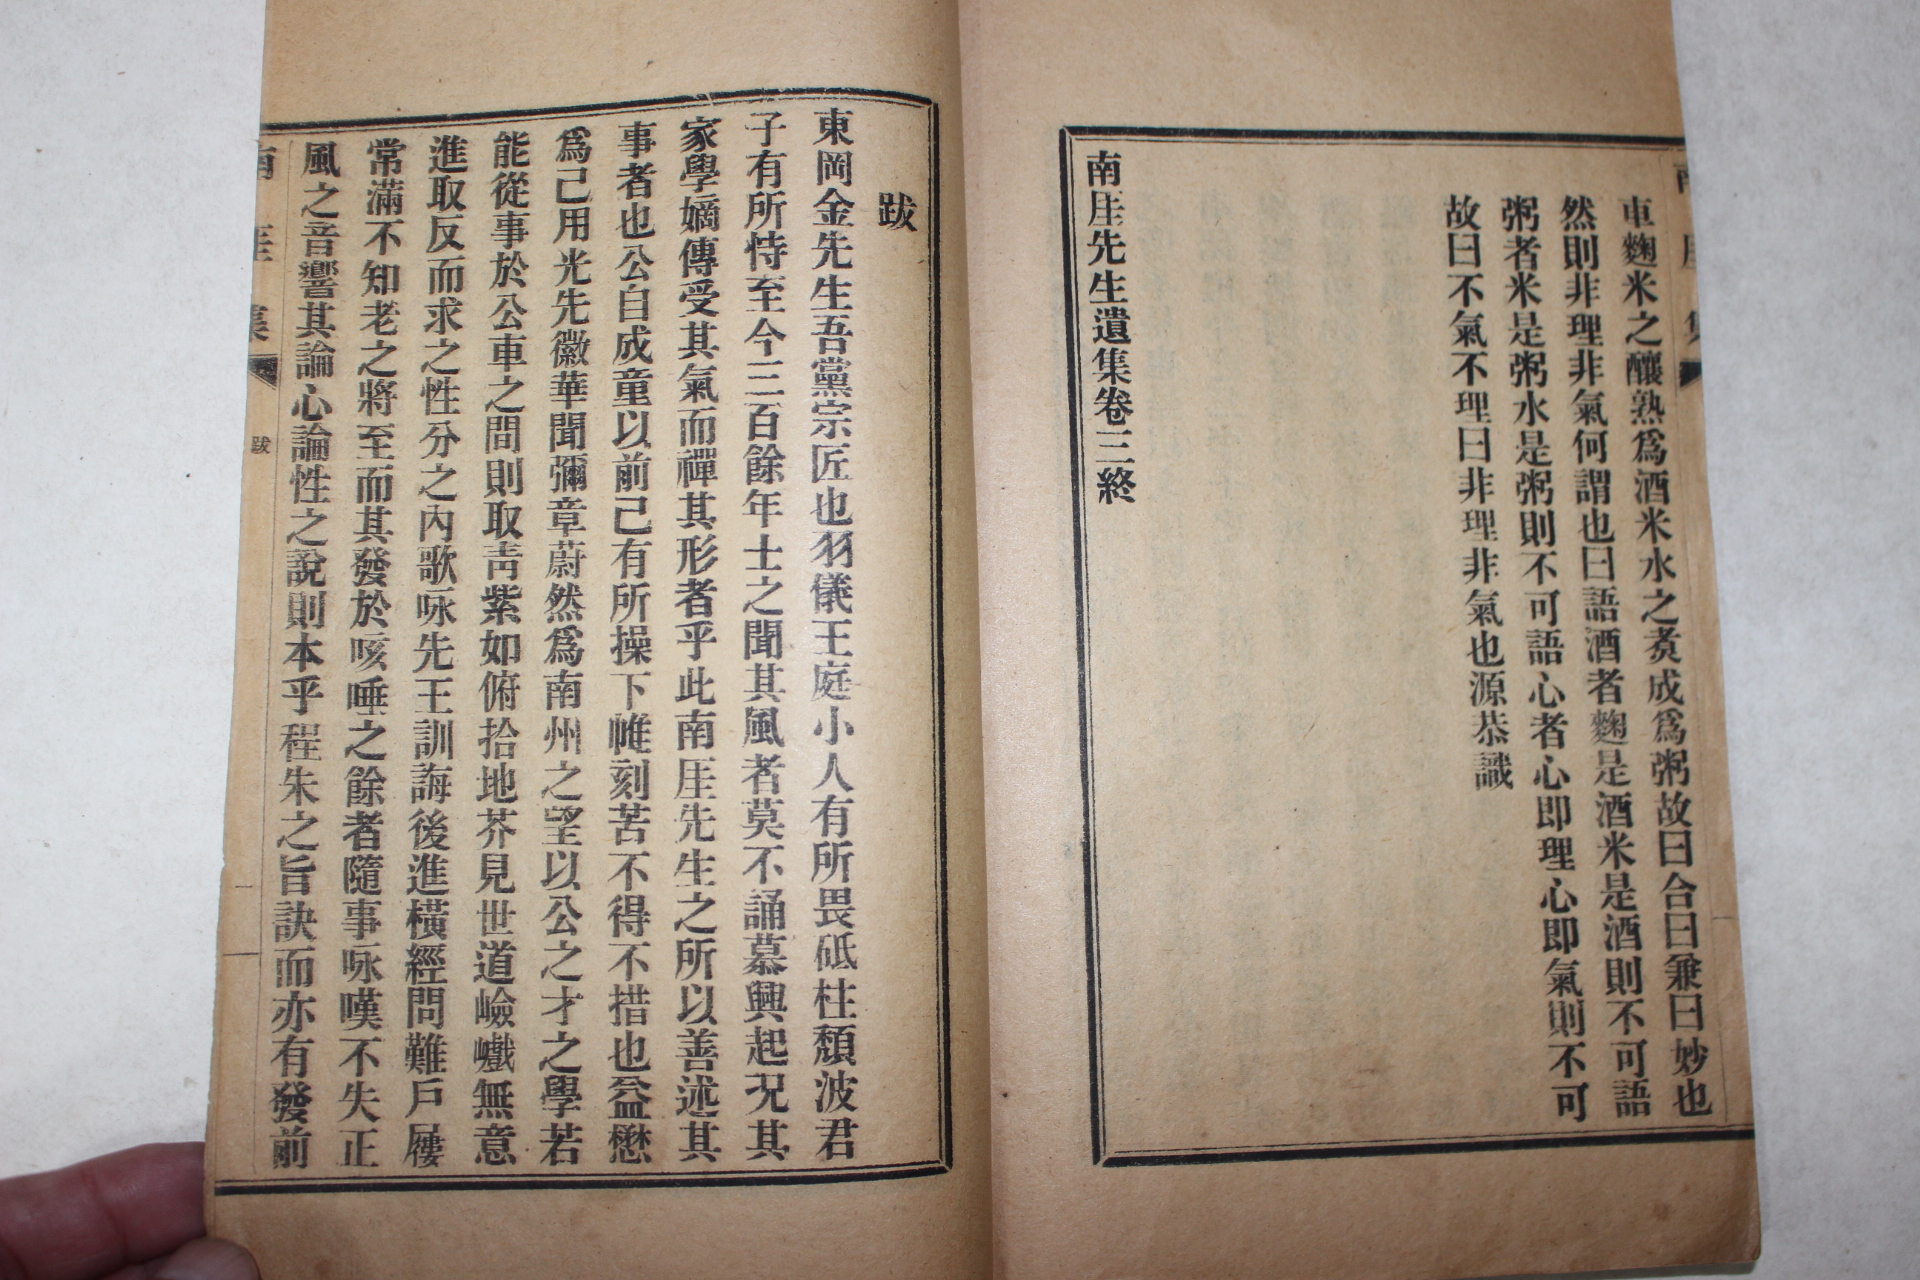 車麴米之釀熟爲酒米水之煑成爲粥故曰合曰兼曰妙也
然則非理非氣何謂也曰語酒者麴是酒米是酒則不可語
粥者米是粥水是粥則不可語心者心即理心即氣則不可
故曰不氣不理曰非理非氣也源恭識
南厓先生遺集卷三終
跋
東岡金先生吾黨宗匠也羽儀王庭小人有所畏砥柱頹波君
子有所恃至今三百餘年士之聞其風者莫不誦慕興起况其
家學嫡傳受其氣而禪其形者乎此南厓先生之所以善述其
事者也公自成童以前已有所操下帷刻苦不得不措也益懋
爲己用光先徽華聞彌章蔚然爲南州之望以公之才之學若
能從事於公車之間則取靑紫如俯拾地芥見世道嶮巇無意
進取反而求之性分之內歌咏先王訓誨後進橫經問難戶屨
常滿不知老之將至而其發於咳唾之餘者隨事咏嘆不失正
風之音響其論心論性之說則本乎程朱之旨訣而亦有發前
跋